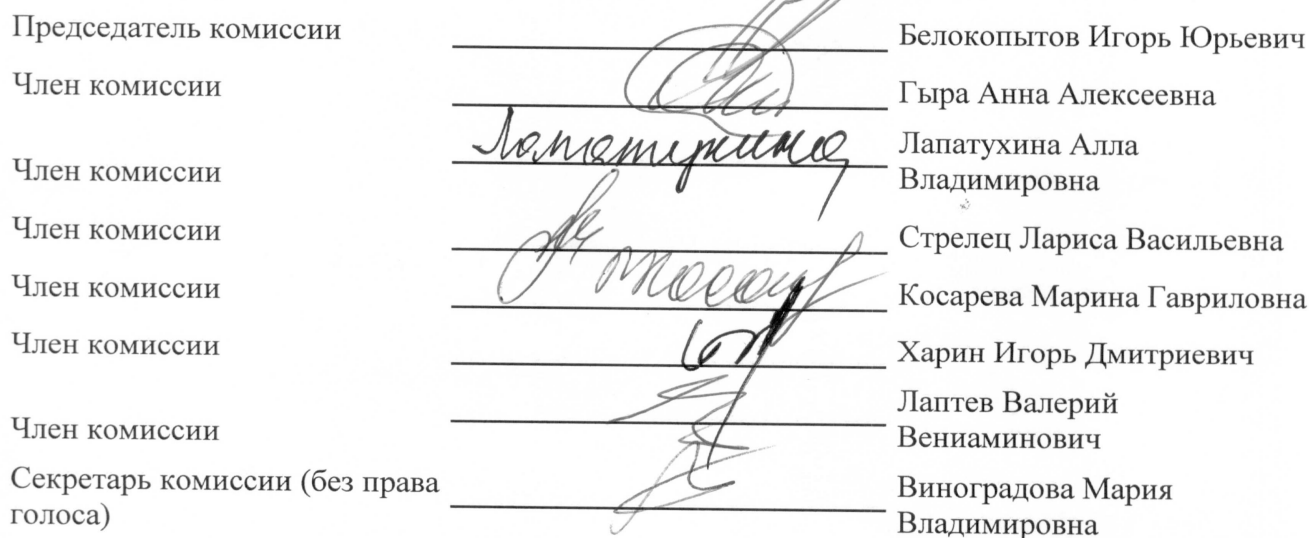 Председатель комиссии Белокопытов Игорь Юрьевич
Член комиссии Гыра Анна Алексеевна
Лапатухина Лапатухина Алла
Член комиссии Владимировна
Член комиссии Стрелец Лариса Васильевна
Член комиссии Косарева Марина Гавриловна
Член комиссии Харин Игорь Дмитриевич
Лаптев Валерий
Член комиссии Вениаминович
Секретарь комиссии (без права Виноградова Мария
голоса) Владимировна